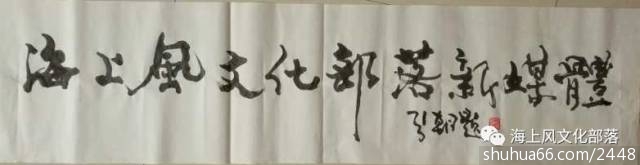 海上風文化部落新媒體
引朝題
海上风文化部落
shuhua66.com/2448